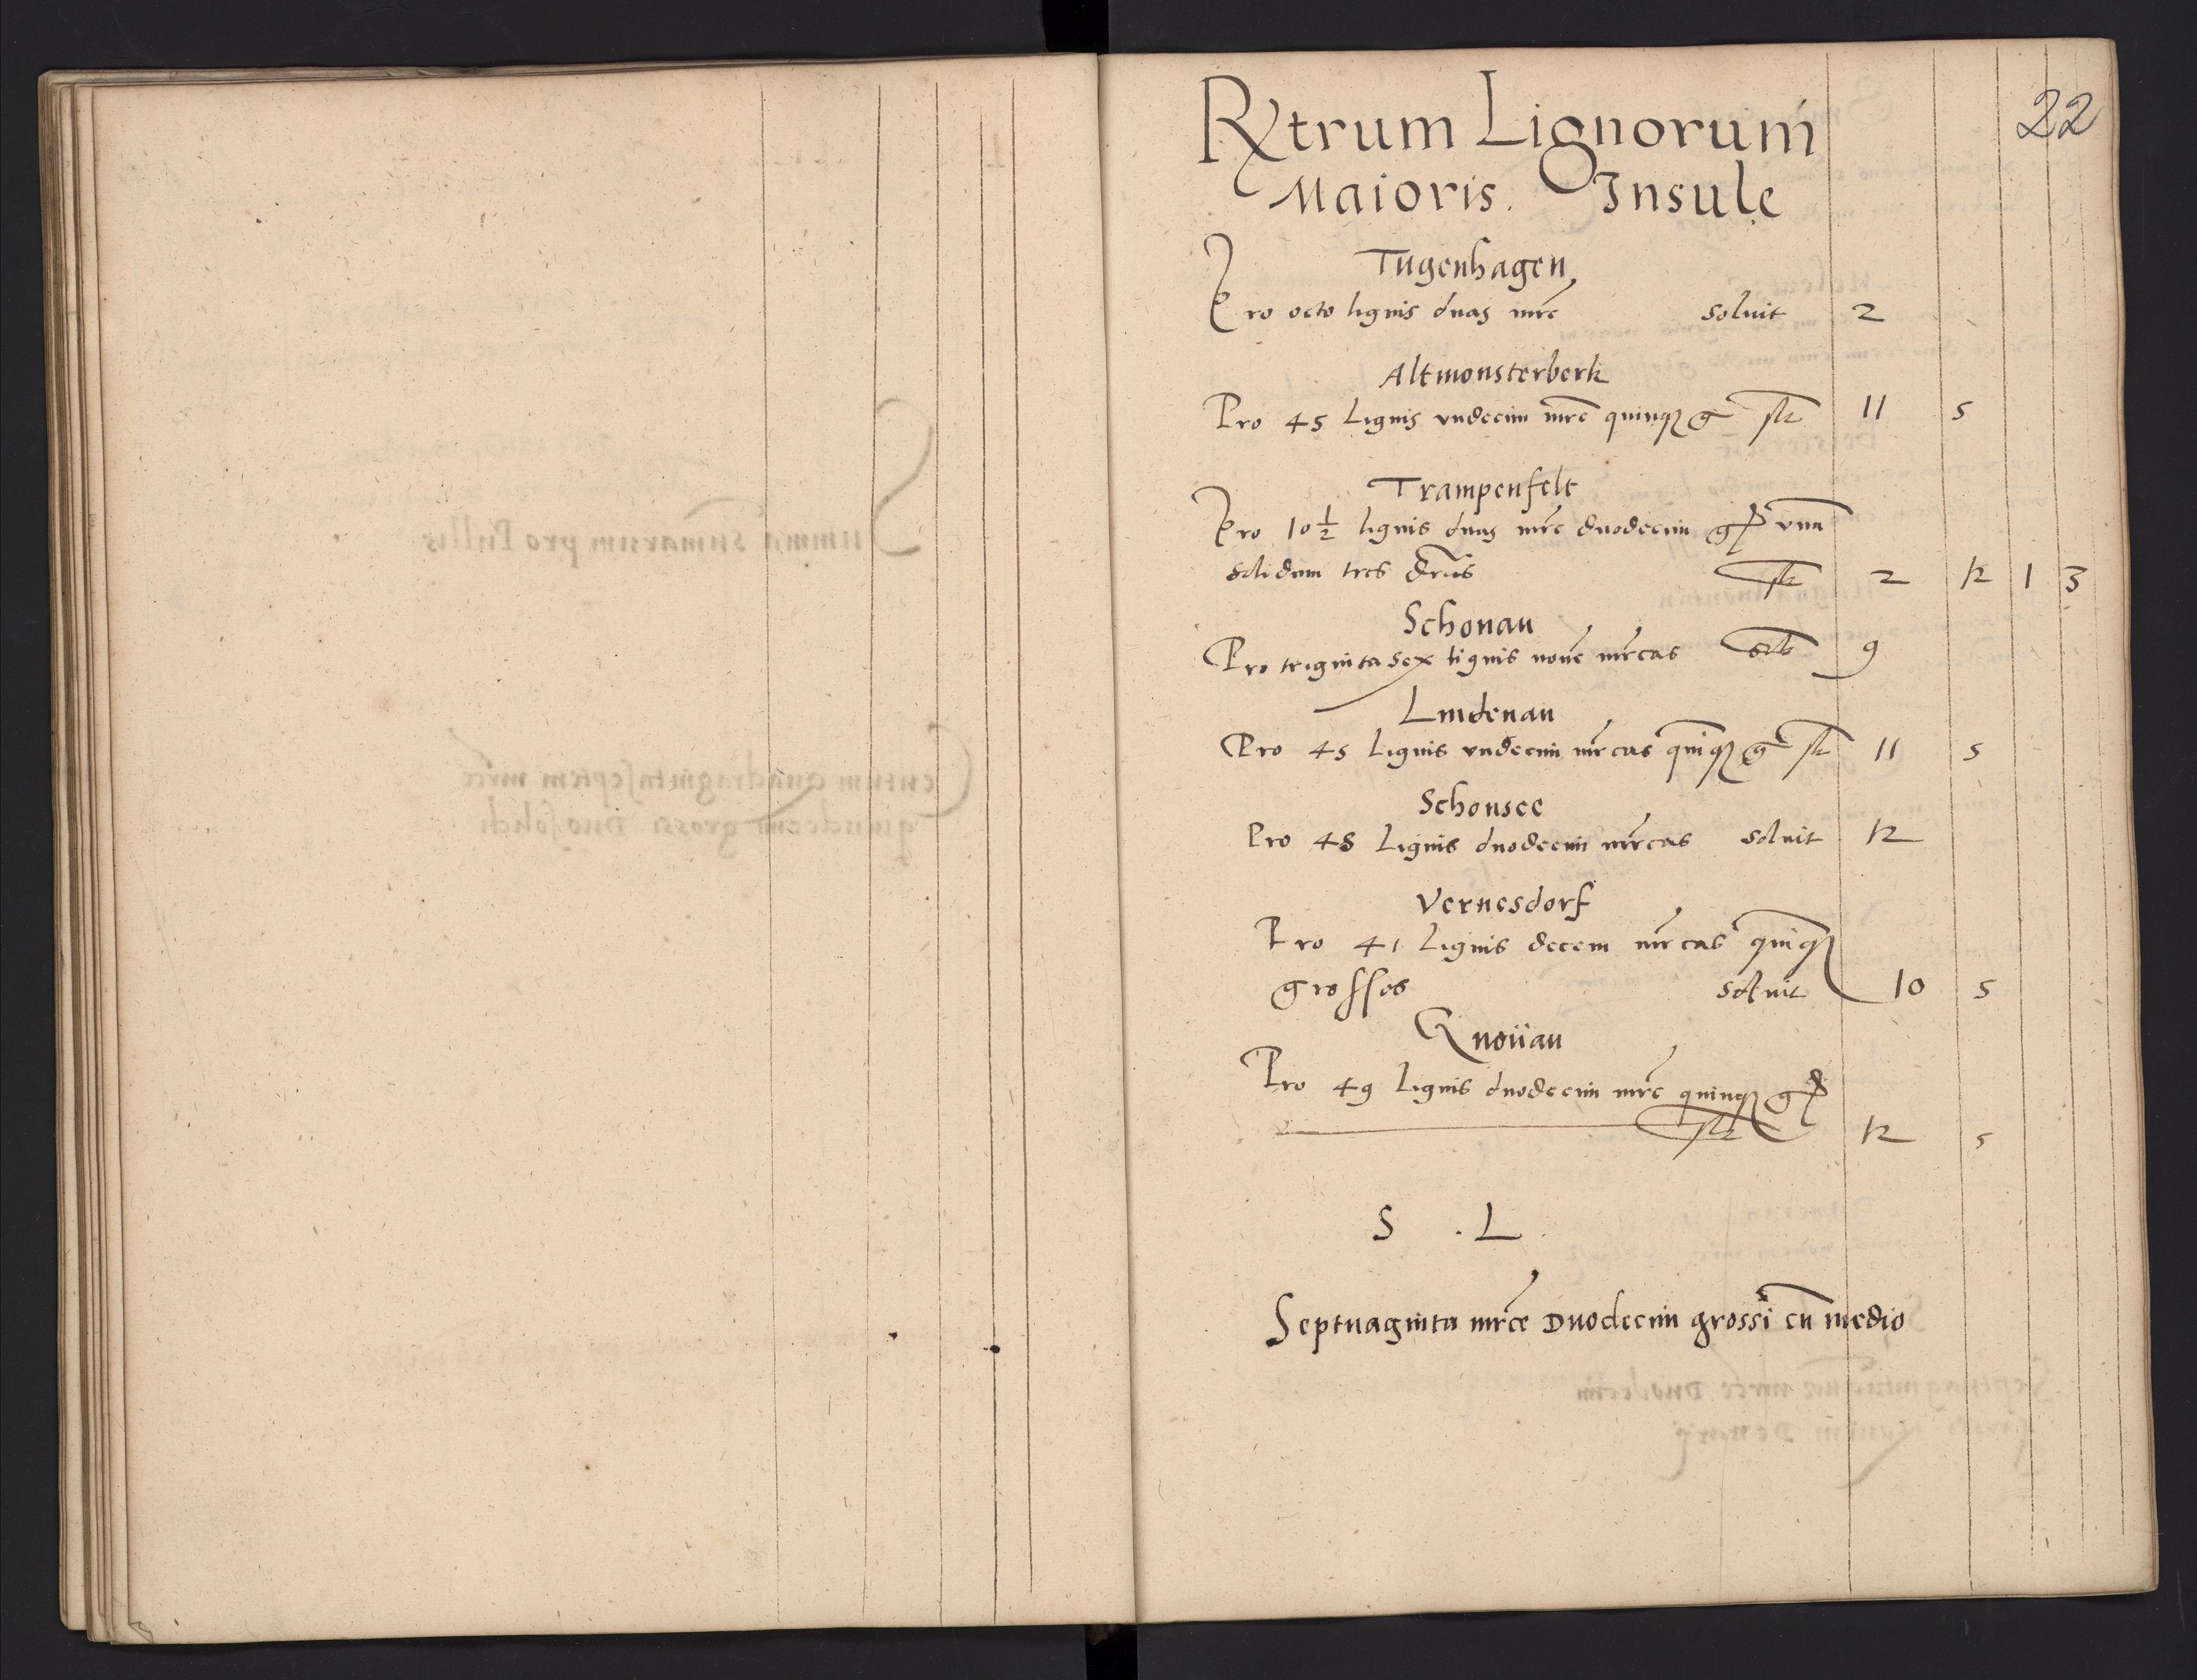 22
Rxtrum Lignorum
Maioris. Insule
Tugenhagen
Pro octo lignis duas mrc soluit 2
Altmonsterberk
Pro 45 Lignis vndecim mrc quinqz g slt 11 5
Trampenfelt
Pro 10 ½ lignis duas mrc duodecim g vnu
solidum tres drios slt 2 12 1 3
Schonau
Pro triginta sex lignis noue mrcas solt 9
Lindenau
Pro 45 Lignis vndecim mrcas quiqz g slt 11 5
Schonsee
Pro 48 Lignis duodecim mrcas soluit 12
Vernesdorf
Pro 41 Lignis decem mrcas quiqz
grosses soluit 10 5
Gnoüau
Pro 49 Lignis duodecim mrc quinqz g
slt 12 5
S . L
Septuaginta mrce Duodecim grossi cu medio